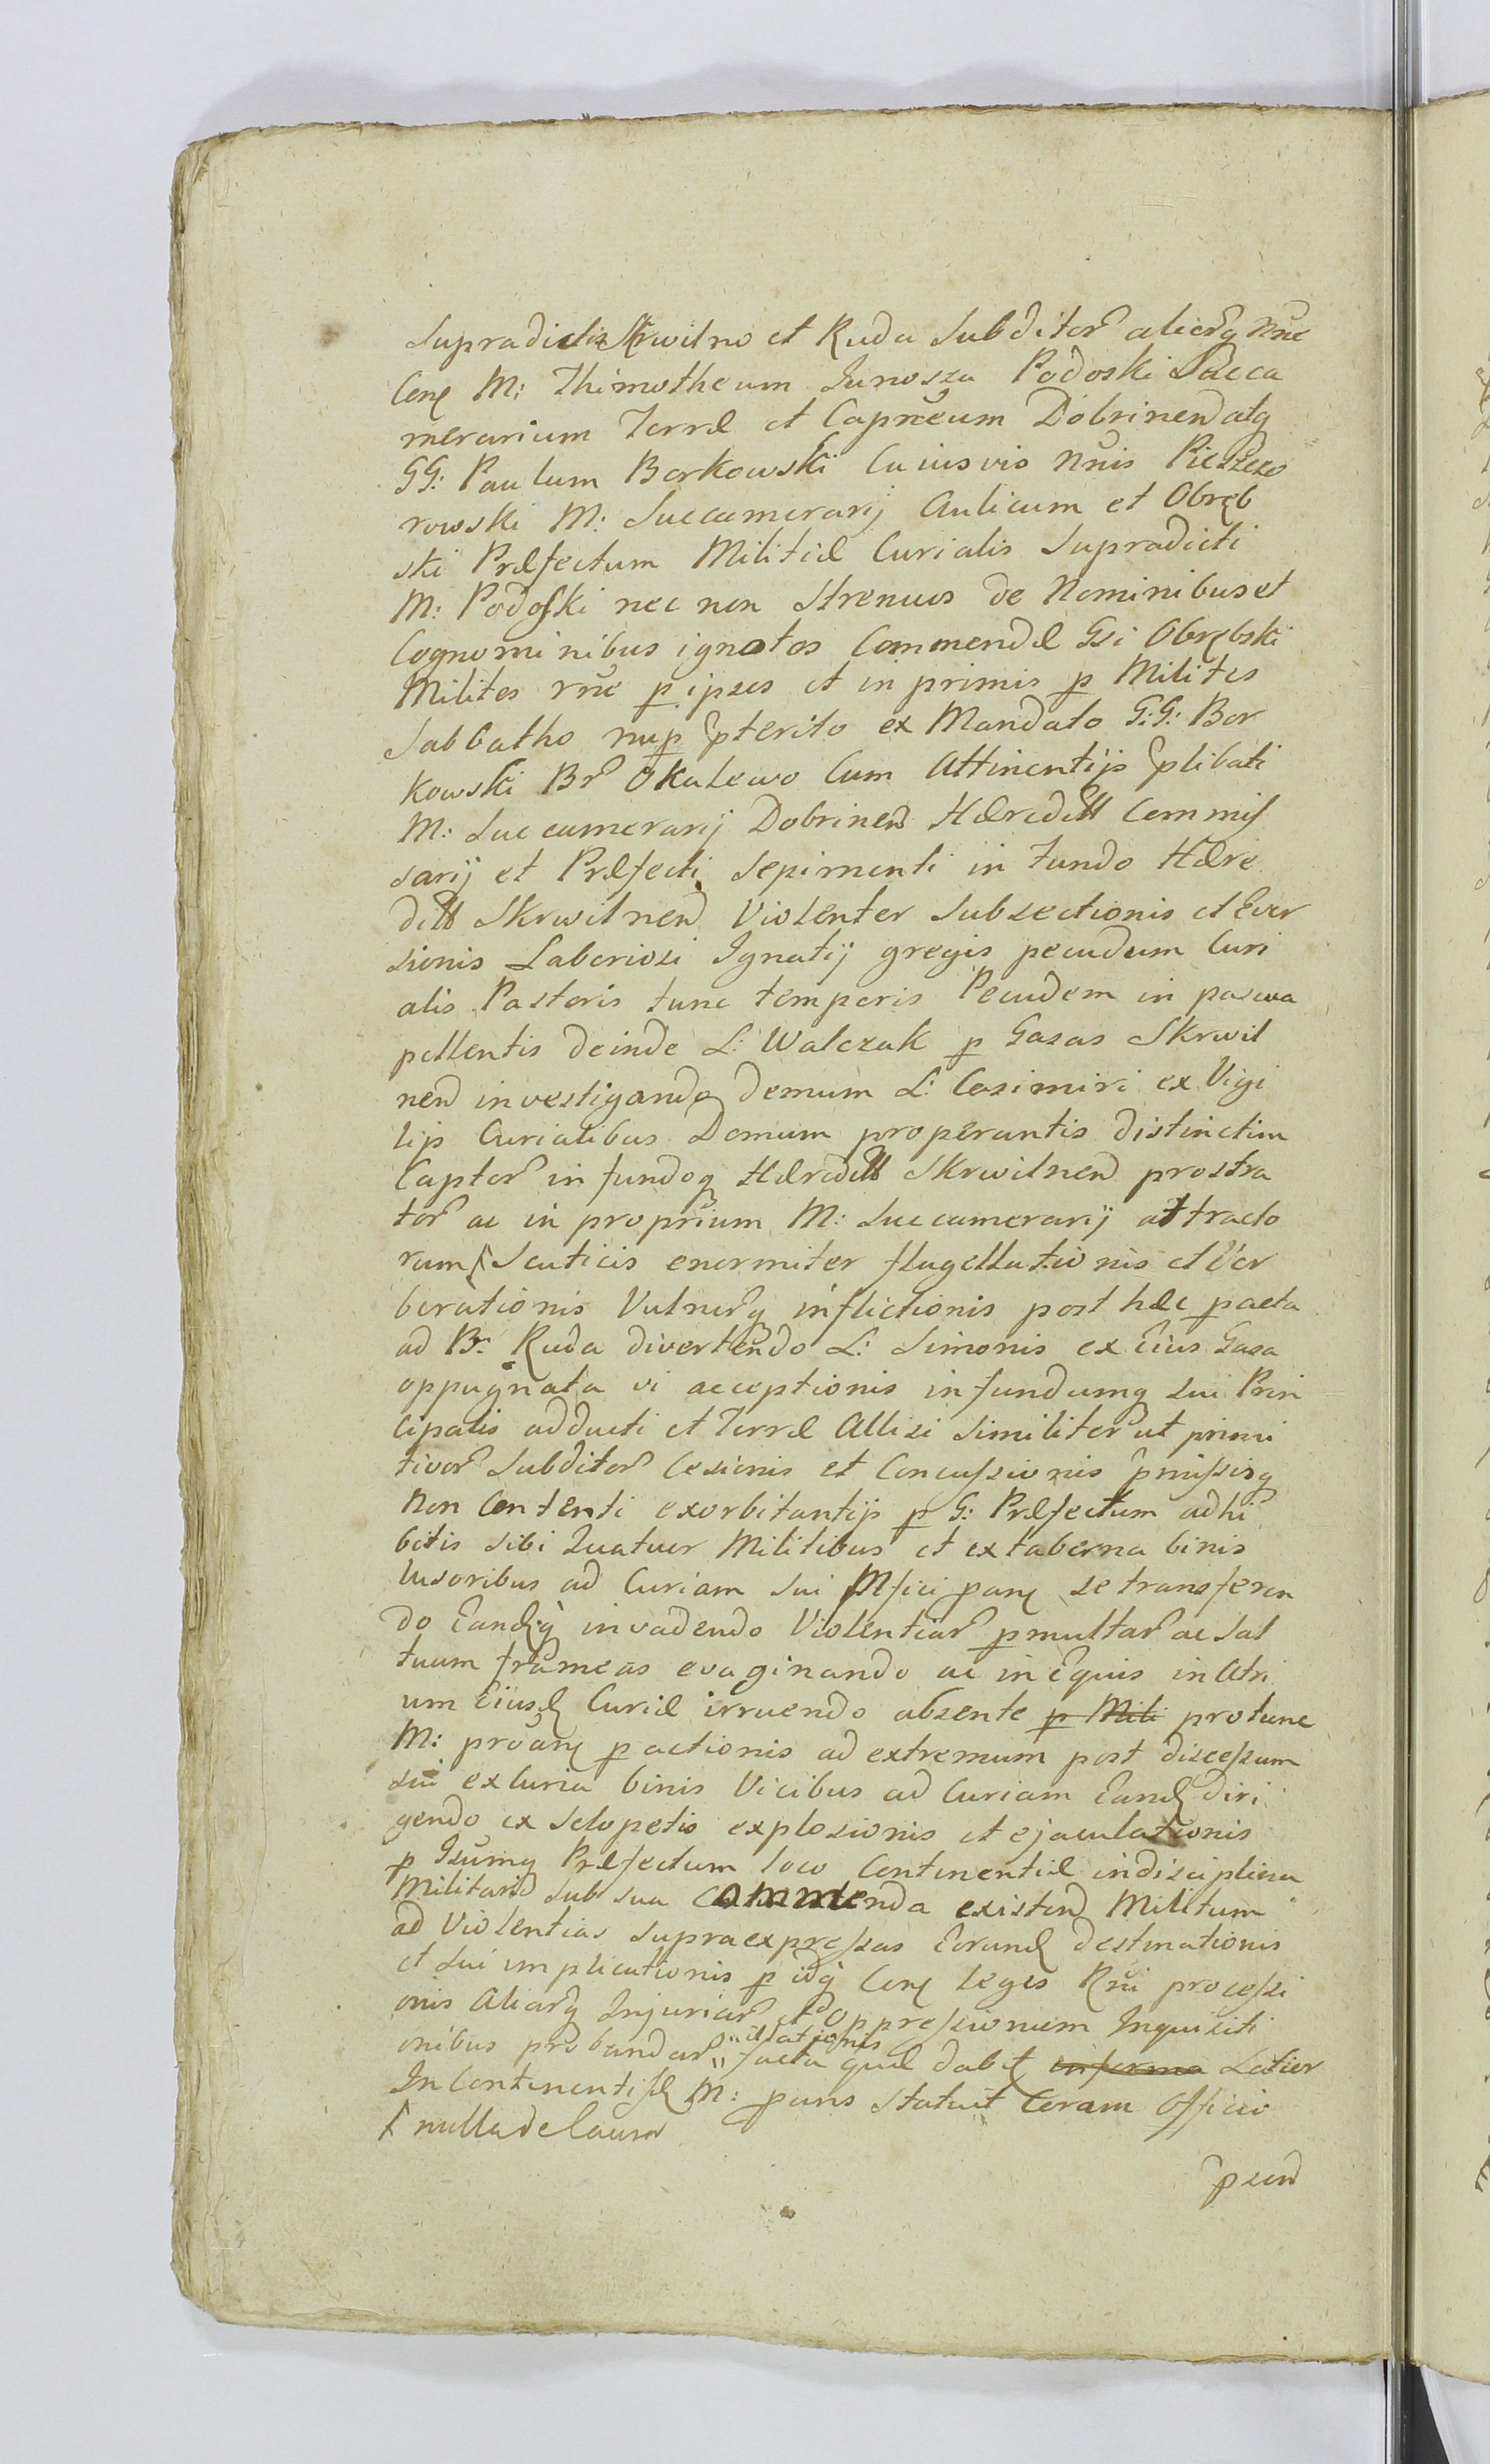 Supradictis Skrwilno et Ruda Subditor aliorq rñe
Conq M: Thimotheum Junosza Podoski Succa
merarium Terræ et Capneum Dobrinend atq
GG: Paulum Borkowski Cuiusvis Nñis Pieszczo
rowski M: Succamerarij Aulicum et Obręb
ski Præfectum Militiæ Curialis Supradicti
M: Podoski nec non Strenuos de Nominibus et
Cognominibus ignotos Commendæ Gsi Obrębski
Milites rñe p ipsos et in primis p Milites
Sabbatho nup pterito ex Mandato G:G: Bor
kowski Br Okalewo Cum Attinentijs plibati
M: Succamerarij Dobrinend Hæreditt Commiſ
sarij et Præfecti Sepimenti in fundo Hære
ditt Skrwilnend Violenter Subsectionis et Ever
sionis Laboriosi Ignatij gregis pecudum Curi
alis Pastoris tunc temporis Pecudem in pascua
pellentis deinde L: Walczak p Gazas Skrwil
nend investigando demum L: Casimiri ex Vigi
lijs Curialibus Domum properantis distinctim
Captor in fundoq Hæreditt Skrwilnend prostra
tor ac in proprium M: Succamerarij attracto
rum Scuticis enormiter flagellationis et Ver
berationis Vulnerq inflictionis post hæc pacta
ad Br Ruda divertendo L: Simonis ex Eius Gasa
oppugnata vi acceptionis in fundumq sui Prin
cipalis adducti et Terræ Allisi similiter ut primi
tivor Subditor Lesionis et Concuſsionis pmiſsisq
Non Contenti exorbitantijs p G: Præfectum adhi
bitis sibi Quatuor Militibus et ex taberna binis
lusoribus ad Curiam sui Mfici panq se transferen
do Eandq invadendo Violentiar pmultar ac Sal
tuum frameas evaginando ac in Equis in Atri
um Eiusd Curiæ irruendo absente p Mili protunc
M: proanq pactionis ad extremum post disceſsum
sui ex Curia binis Vicibus ad Curiam Eand diri
gendo ex Sclopetis explosionis et ejaculationis
p Gsumq Præfectum loco Continentiæ in disciplina
Militarid sub sua Commenda existend Militum
ad Violentias supraexpreſsas Eorund destinationis
et sui implicationis p idq Conq leges Rni proceſsi
onis Aliarq Injuriar et Oppreſsionum Inquisiti
onibus probandar "illationis" facta quæ dabit in forma Latior
In Continentiſd M: pans Statuit Coram Officio
nulla de Causa
psend